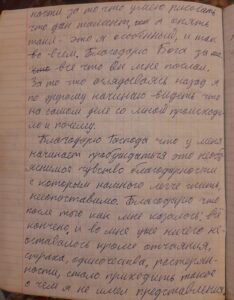 ности за то что умею рисовать
что дан талант, а опять
таки - это я особенный, и так
во всём. Благодарю Бога за
всё что он мне послал.
За то что оглядываясь назад я
по другому начинаю видеть что
на самом деле со мной происходи
ло и почему.
Благодарю Господа что у меня
начинает пробуждаться это
чувство благодарности
с которым намного легче жить,
несопоставимо. Благодарю что
после того как мне казалось, всё
кончено, и во мне уже ничего не
оставалось кроме отчаяния,
страха, одиночества, растерян-
ности, стало приходить такое
о чем я не имел представления